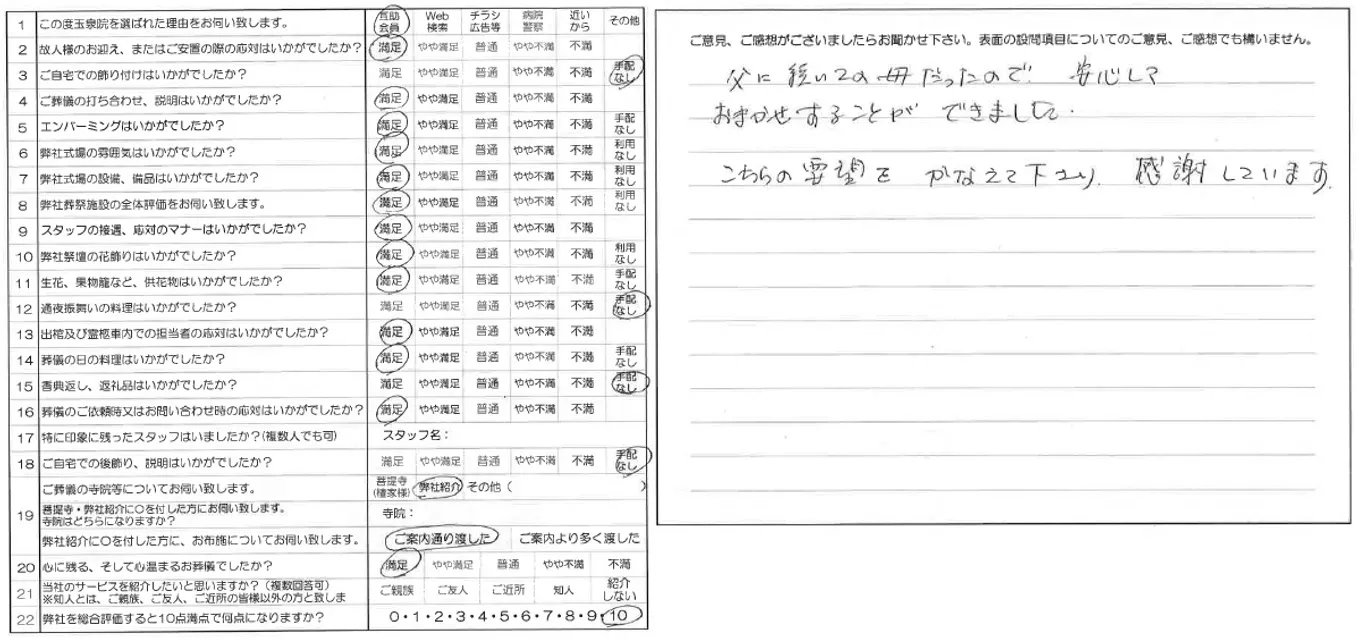 1 この度玉泉院を選ばれた理由をお伺い致します。 互助会員 Web検索 チラシ広告等 病院警察 近いから その他
2 故人様のお迎え、またはご安置の際の応対はいかがでしたか? 満足 やや満足 普通 やや不満 不満
3 ご自宅での飾り付けはいかがでしたか? 満足 やや満足 普通 やや不満 不満 手配なし
4 ご葬儀の打ち合わせ、説明はいかがでしたか? 満足 やや満足 普通 やや不満 不満
5 エンバーミングはいかがでしたか? 満足 やや満足 普通 やや不満 不満 手配なし
6 弊社式場の雰囲気はいかがでしたか? 満足 やや満足 普通 やや不満 不満 利用なし
7 弊社式場の設備、備品はいかがでしたか? 満足 やや満足 普通 やや不満 不満 利用なし
8 弊社葬祭施設の全体評価をお伺い致します。 満足 やや満足 普通 やや不満 不満 利用なし
9 スタッフの接遇、応対のマナーはいかがでしたか? 満足 やや満足 普通 やや不満 不満
10 弊社祭壇の花飾りはいかがでしたか? 満足 やや満足 普通 やや不満 不満 利用なし
11 生花、果物籠など、供花物はいかがでしたか? 満足 やや満足 普通 やや不満 不満 手配なし
12 通夜振舞いの料理はいかがでしたか? 満足 やや満足 普通 やや不満 不満 手配なし
13 出棺及び霊柩車内での担当者の応対はいかがでしたか? 満足 やや満足 普通 やや不満 不満
14 葬儀の日の料理はいかがでしたか? 満足 やや満足 普通 やや不満 不満 手配なし
15 香典返し、返礼品はいかがでしたか? 満足 やや満足 普通 やや不満 不満 手配なし
16 葬儀のご依頼時又はお問い合わせ時の応対はいかがでしたか? 満足 やや満足 普通 やや不満 不満
17 特に印象に残ったスタッフはいましたか?(複数人でも可) スタッフ名:
18 ご自宅での後飾り、説明はいかがでしたか? 満足 やや満足 普通 やや不満 不満 手配なし
19 ご葬儀の寺院等についてお伺い致します。 菩提寺(檀家様) 弊社紹介 その他( )
菩提寺・弊社紹介に○を付した方にお伺い致します。
寺院はどちらになりますか? 寺院:
弊社紹介に○を付した方に、お布施についてお伺い致します。 ご案内通り渡した ご案内より多く渡した
20 心に残る、そして心温まるお葬儀でしたか? 満足 やや満足 普通 やや不満 不満
21 当社のサービスを紹介したいと思いますか?(複数回答可)
※知人とは、ご親族、ご友人、ご近所の皆様以外の方と致しま ご親族 ご友人 ご近所 知人 紹介しない
22 弊社を総合評価すると10点満点で何点になりますか? 0・1・2・3・4・5・6・7・8・9・10
ご意見、ご感想がございましたらお聞かせ下さい。表面の設問項目についてのご意見、ご感想でも構いません。
父に続いての母だったので 安心して
おまかせすることが できました.
こちらの要望を かなえて下さり、感謝しています.